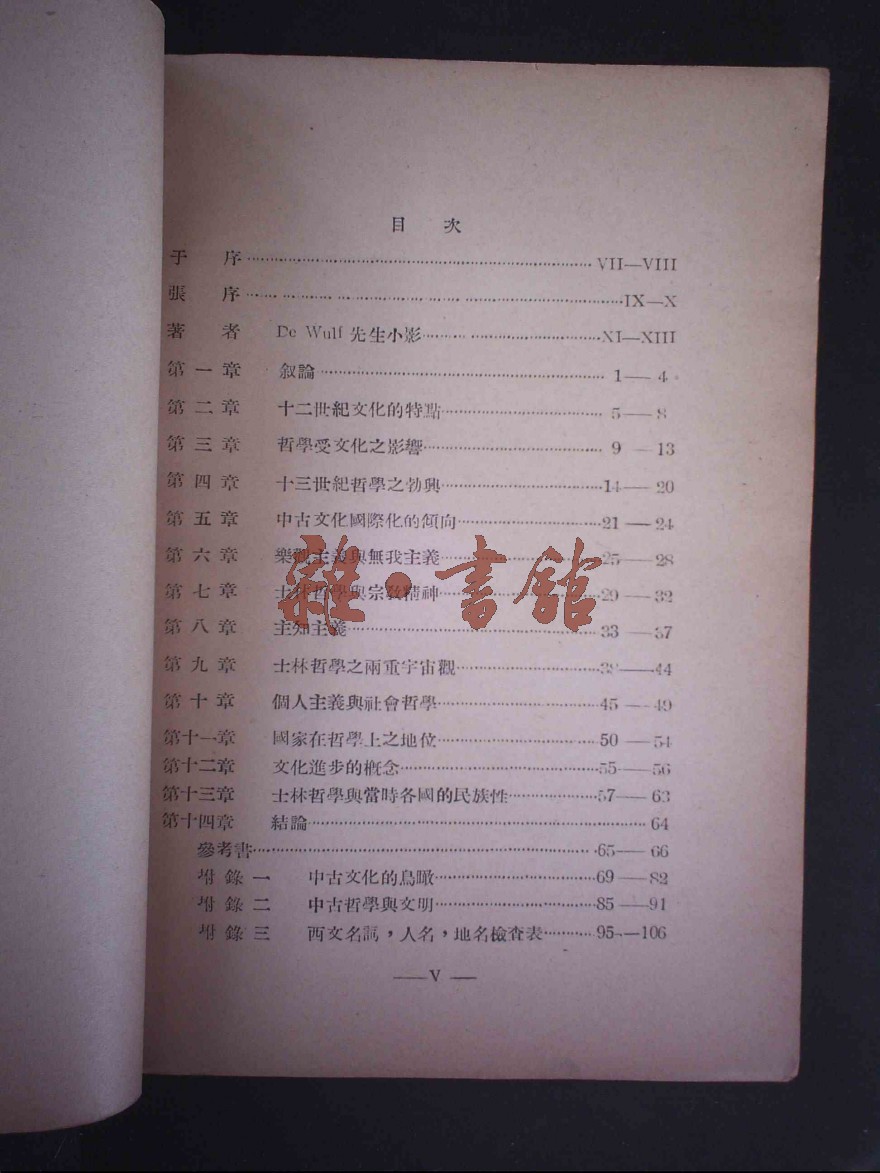 目 次
于 序 VII—VIII
張 序 IX—X
著 者 De Wulf 先生小影 XI—XIII
第一章 叙論 1—4
第二章 十二世紀文化的特點 5—8
第三章 哲學受文化之影響 9—13
第四章 十三世紀哲學之勃興 14—20
第五章 中古文化國際化的傾向 21—24
第六章 樂觀主義與無我主義 25—28
第七章 士林哲學與宗教精神 29—32
第八章 主知主義 33—37
第九章 士林哲學之兩重宇宙觀 38—44
第十章 個人主義與社會哲學 45—49
第十一章 國家在哲學上之地位 50—54
第十二章 文化進步的概念 55—56
第十三章 士林哲學與當時各國的民族性 57—63
第十四章 結論 64
參考書 65—66
坿錄一 中古文化的鳥瞰 69—82
坿錄二 中古哲學與文明 85—91
坿錄三 西文名詞，人名，地名檢查表 95—106
—V—
雜·書館